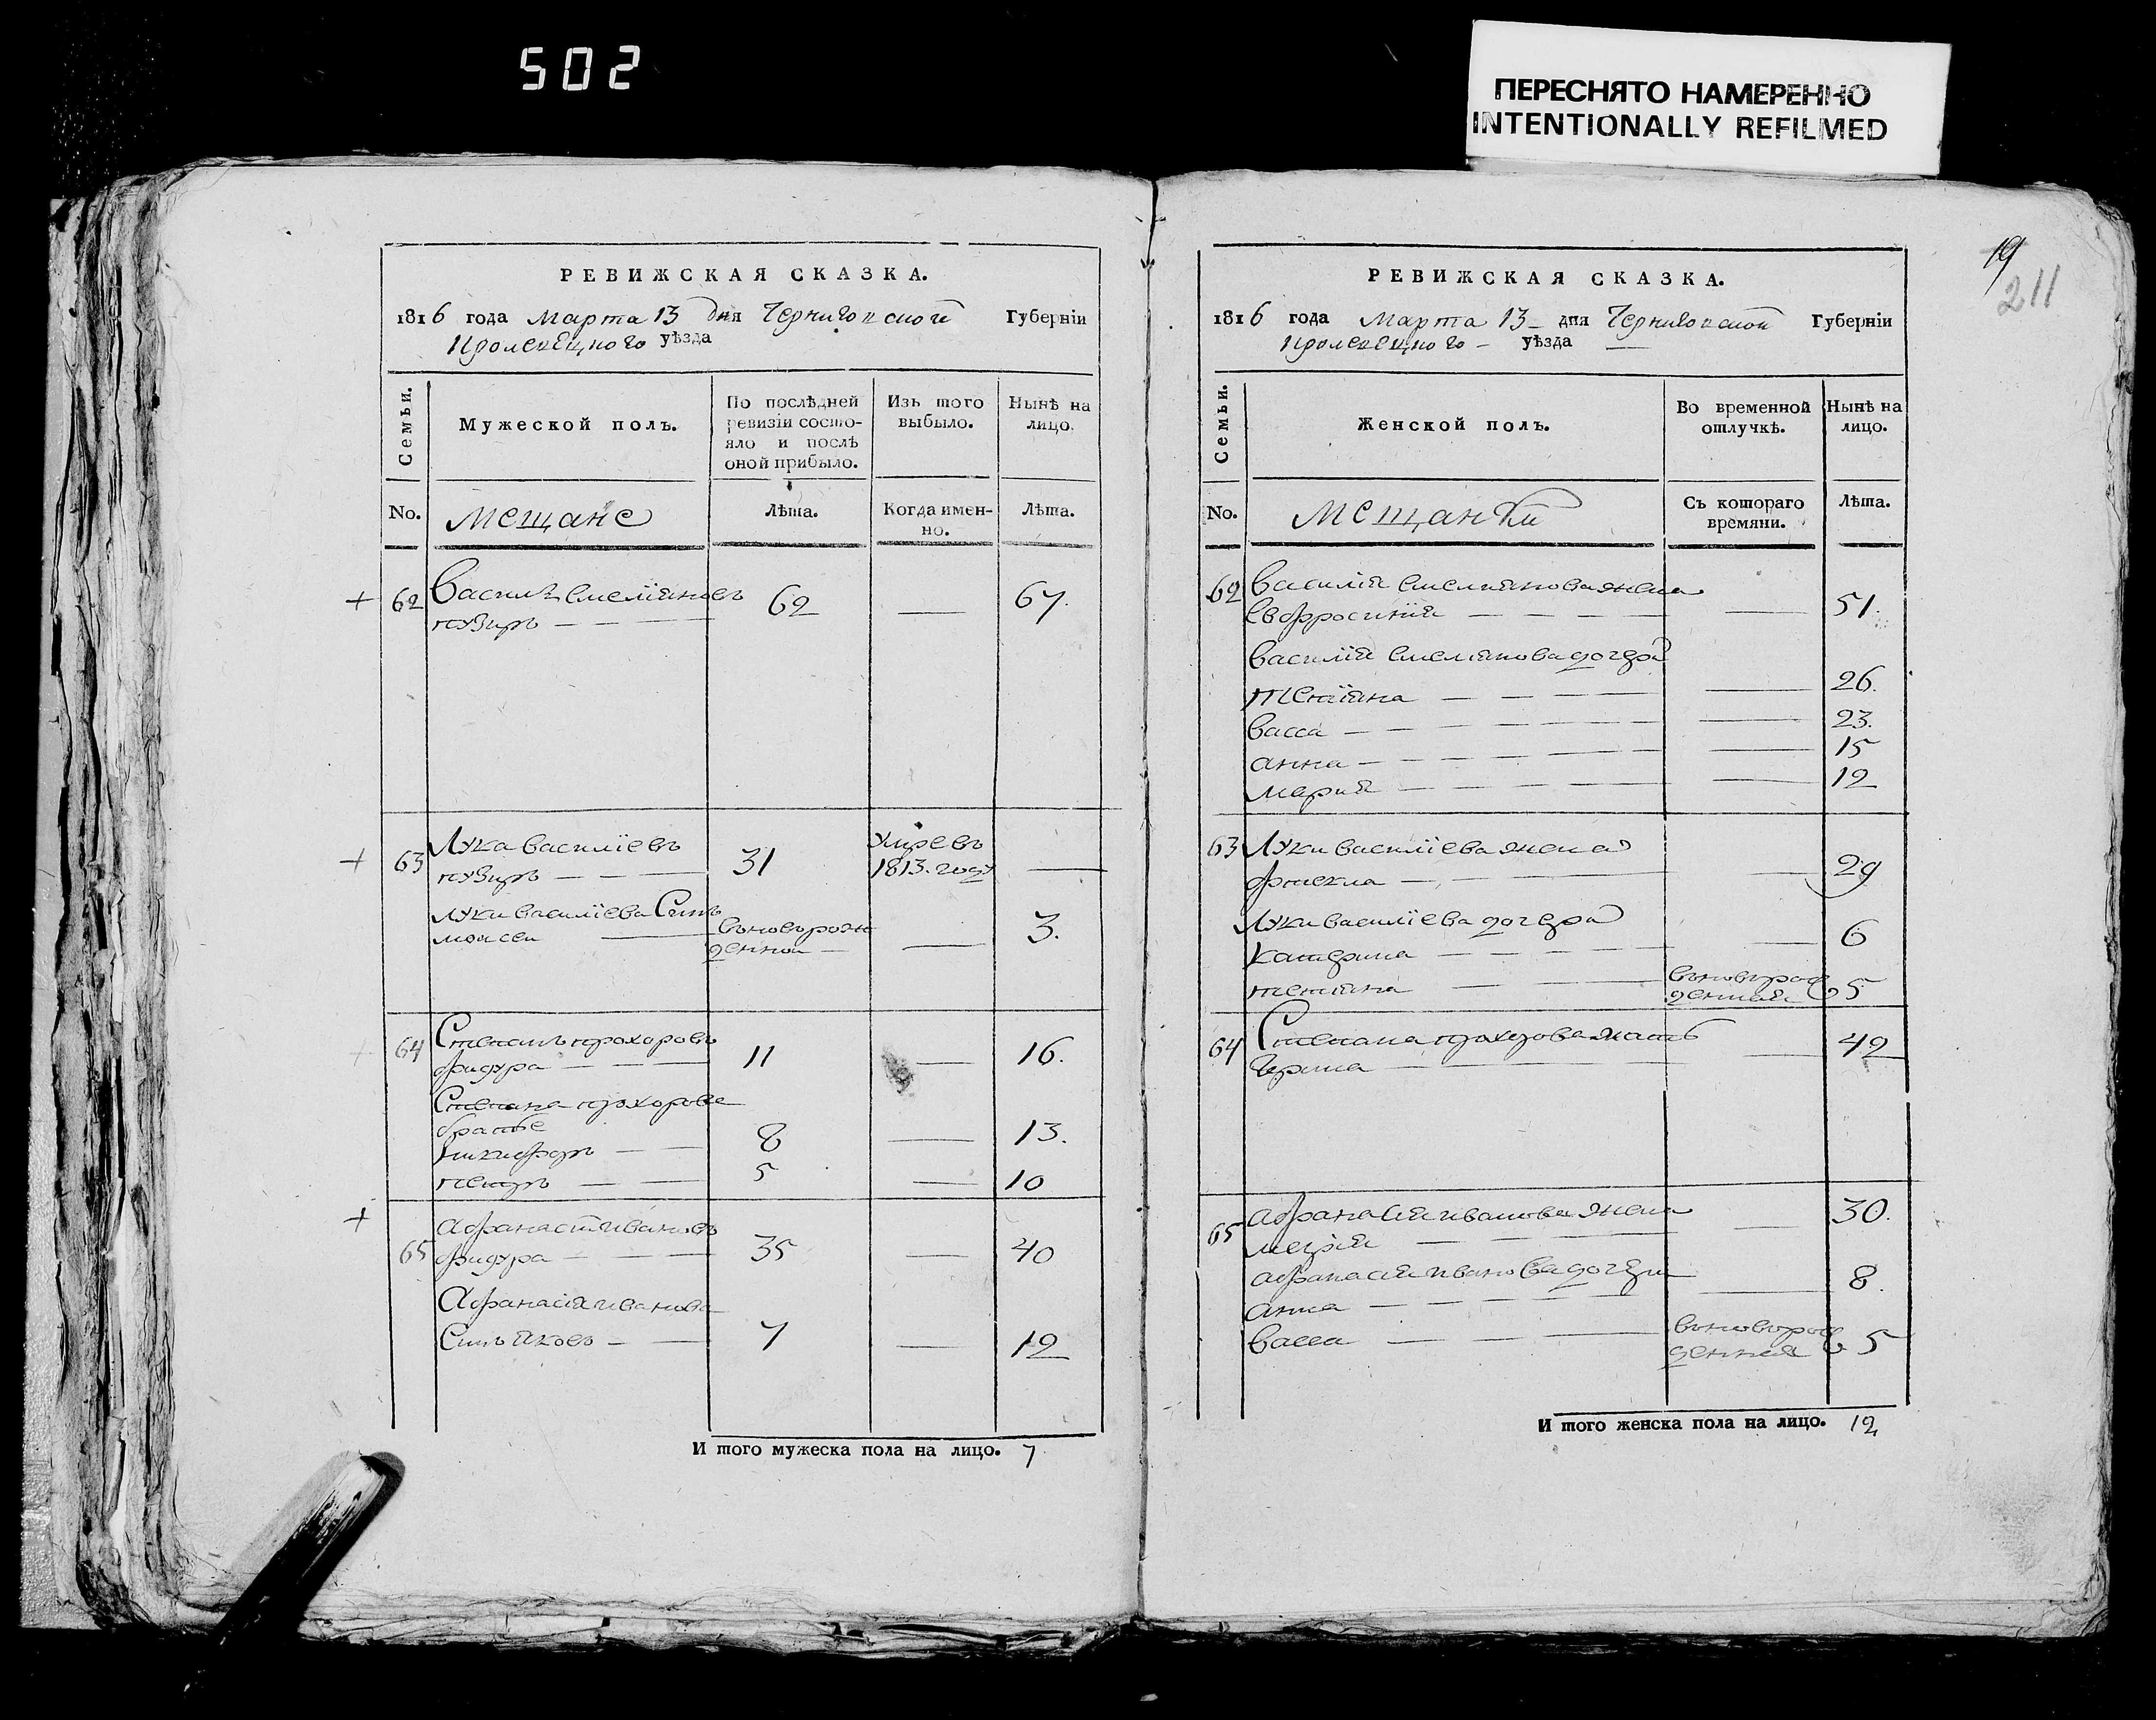 502
ПЕРЕСНЯТО НАМЕРЕННО
INTENTIONALLY REFILMED
РЕВИЖСКАЯ СКАЗКА.
1816 года Марта 13 дня Черниговской Губерніи
уѣзда
Семьи.
Мужеской полъ.
По послѣдней
ревизіи состо-
яло и послѣ
оной прибыло.
Изъ того
выбыло.
Нынѣ на
лицо.
No.
Мещане
Лѣта.
Когда имен-
но.
Лѣта.
62 Василь Емеліяновъ 62 — 67.
пузиръ
63 Лука василіевъ 31 умре въ —
пузиръ 1813. году
луки василіева Синъ вьноворож 3.
моисей денной —
64 Степанъ прохоровъ 11 — 16.
фидура
Степана прохорова
братье
никифоръ 8 — 13.
петръ 5 — 10
65 афанасій ивановъ 35 — 40
фидура
Афанасія иванова
Синъ яковъ 7 — 12
И того мужеска пола на лицо. 7
19
211
РЕВИЖСКАЯ СКАЗКА.
1816 года Марта 13 дня Черниговской Губерніи
уѣзда
Семьи.
Женской полъ.
Во временной
отлучкѣ.
Нынѣ на
лицо.
No.
Мещанки
Съ котораго
времяни.
Лѣта.
62 василія емеліянова жена
Евфросинія — 51.
василія емеліянова дочера
тетіяна — 26.
васса — 23.
анна — 15
марія — 12
63 Луки василіева жена
фтекла — 29
Луки василіева дочера
катерина — 6
тетіяна вьноворож 5
денная
64 Степана прохорова мать — 42
65 афанасія иванова жена — 30.
марія
афанасія иванова дочери
анна — 8.
васса вьноворож 5
денная
И того женска пола на лицо. 12